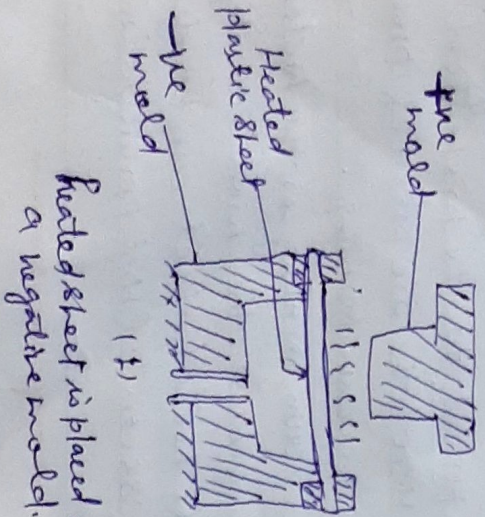 +ve
mold
Heated
plastic sheet
-ve
mold
(1)
heated sheet is placed
a negative mold.